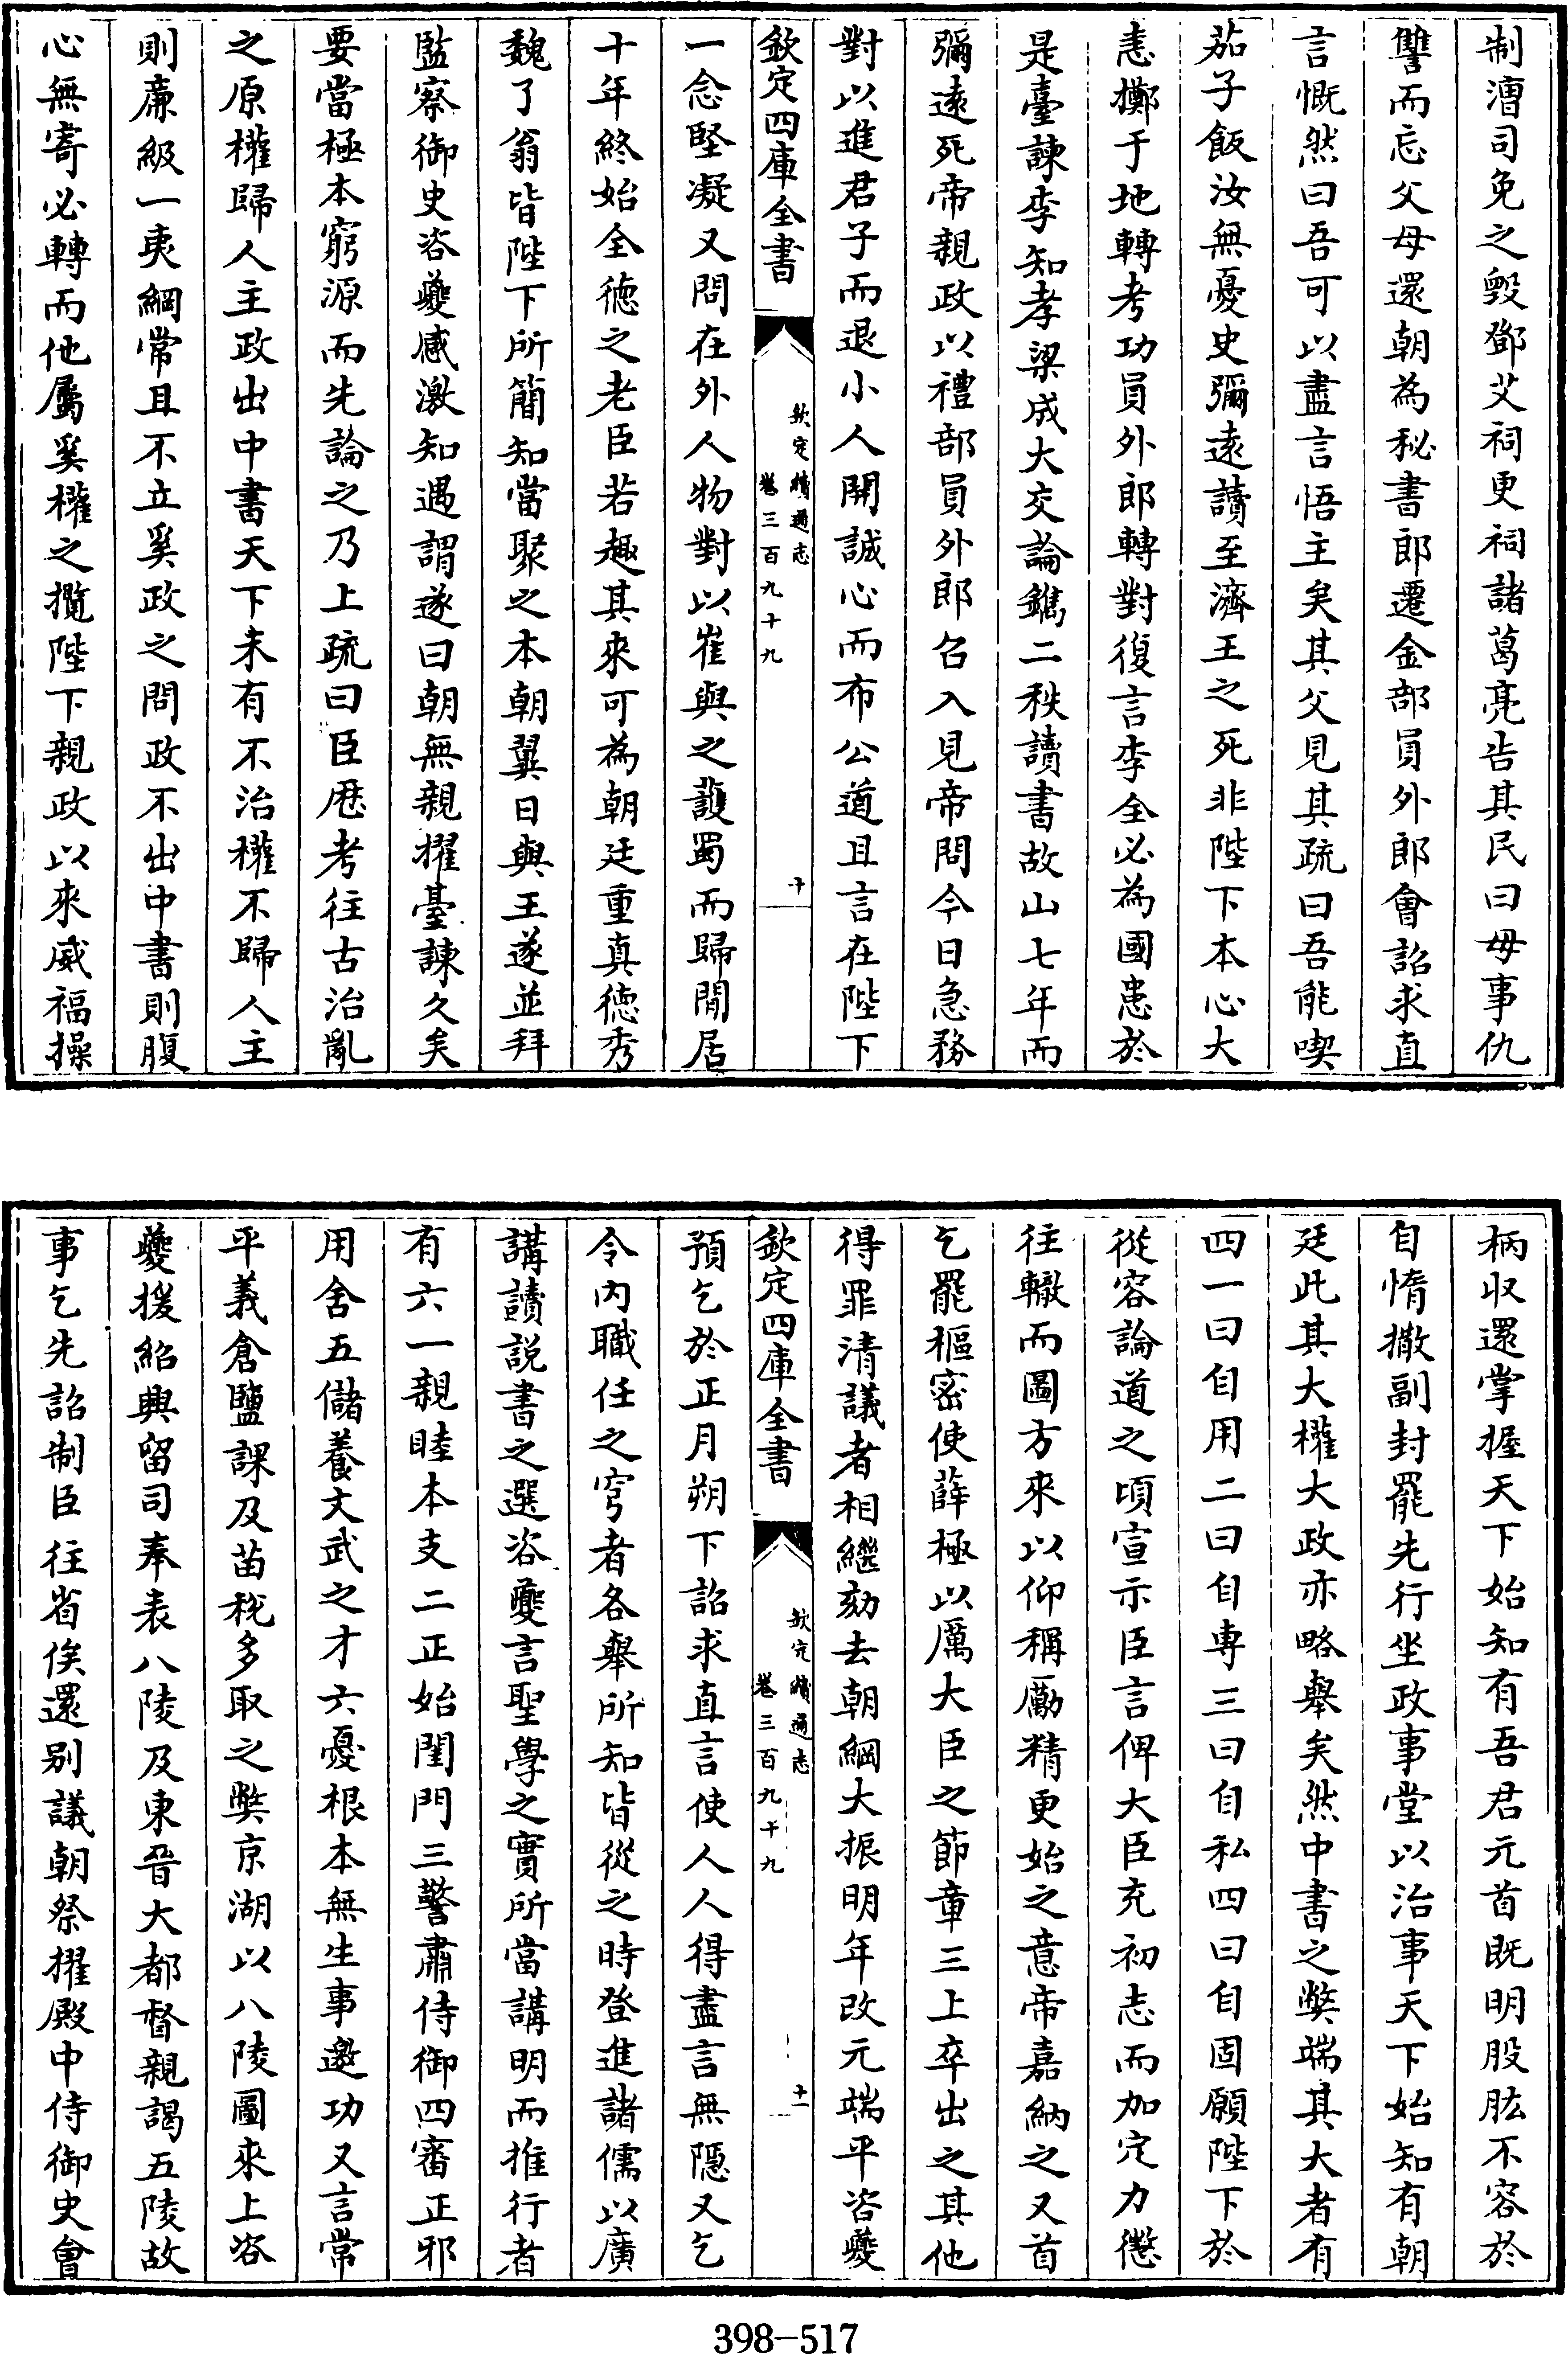 制漕司免之毀鄧艾祠更祠諸葛亮告其民曰毋事仇
讐而忘父母還朝為秘書郎遷金部員外郎會詔求直
言慨然曰吾可以盡言悟主矣其父見其疏曰吾能喫
茄子飯汝無憂史彌遠讀至濟王之死非陛下本心大
恚擲于地轉考功員外郎轉對復言李全必為國患於
是臺諫李知孝梁成大交論鐫二秩讀書故山七年而
彌遠死帝親政以禮部員外郎召入見帝問今日急務
對以進君子而退小人開誠心而布公道且言在陛下
欽定四庫全書
欽定續通志
卷三百九十九
十
一念堅凝又問在外人物對以崔與之護蜀而歸閒居
十年終始全德之老臣若趣其來可為朝廷重真德秀
魏了翁皆陛下所簡知當聚之本朝翼日與王遂並拜
監察御史咨夔感激知遇謂遂曰朝無親擢臺諫久矣
要當極本窮源而先論之乃上疏曰臣歴考往古治亂
之原權歸人主政出中書天下未有不治權不歸人主
則廉級一夷綱常且不立奚政之問政不出中書則腹
心無寄必轉而他屬奚權之攬陛下親政以來威福操
柄收還掌握天下始知有吾君元首既明股肱不容於
自惰撤副封罷先行坐政事堂以治事天下始知有朝
廷此其大權大政亦略舉矣然中書之弊端其大者有
四一曰自用二曰自専三曰自私四曰自固願陛下於
從容論道之頃宣示臣言俾大臣充初志而加定力懲
往轍而圖方來以仰稱勵精更始之意帝嘉納之又首
乞罷樞密使薛極以厲大臣之節章三上卒出之其他
得罪清議者相繼劾去朝綱大振明年改元端平咨夔
欽定四庫全書
欽定續通志
卷三百九十九
十一
預乞於正月朔下詔求直言使人人得盡言無隱又乞
令內職任之穹者各舉所知皆從之時登進諸儒以廣
講讀說書之選咨夔言聖學之實所當講明而推行者
有六一親睦本支二正始閨門三警肅侍御四審正邪
用舍五儲養文武之才六憂根本無生事邀功又言常
平義倉鹽課及苗稅多取之弊京湖以八陵圖來上咨
夔援紹興留司奉表八陵及東晉大都督親謁五陵故
事乞先詔制臣往省俟還别議朝祭擢殿中侍御史會
398-517